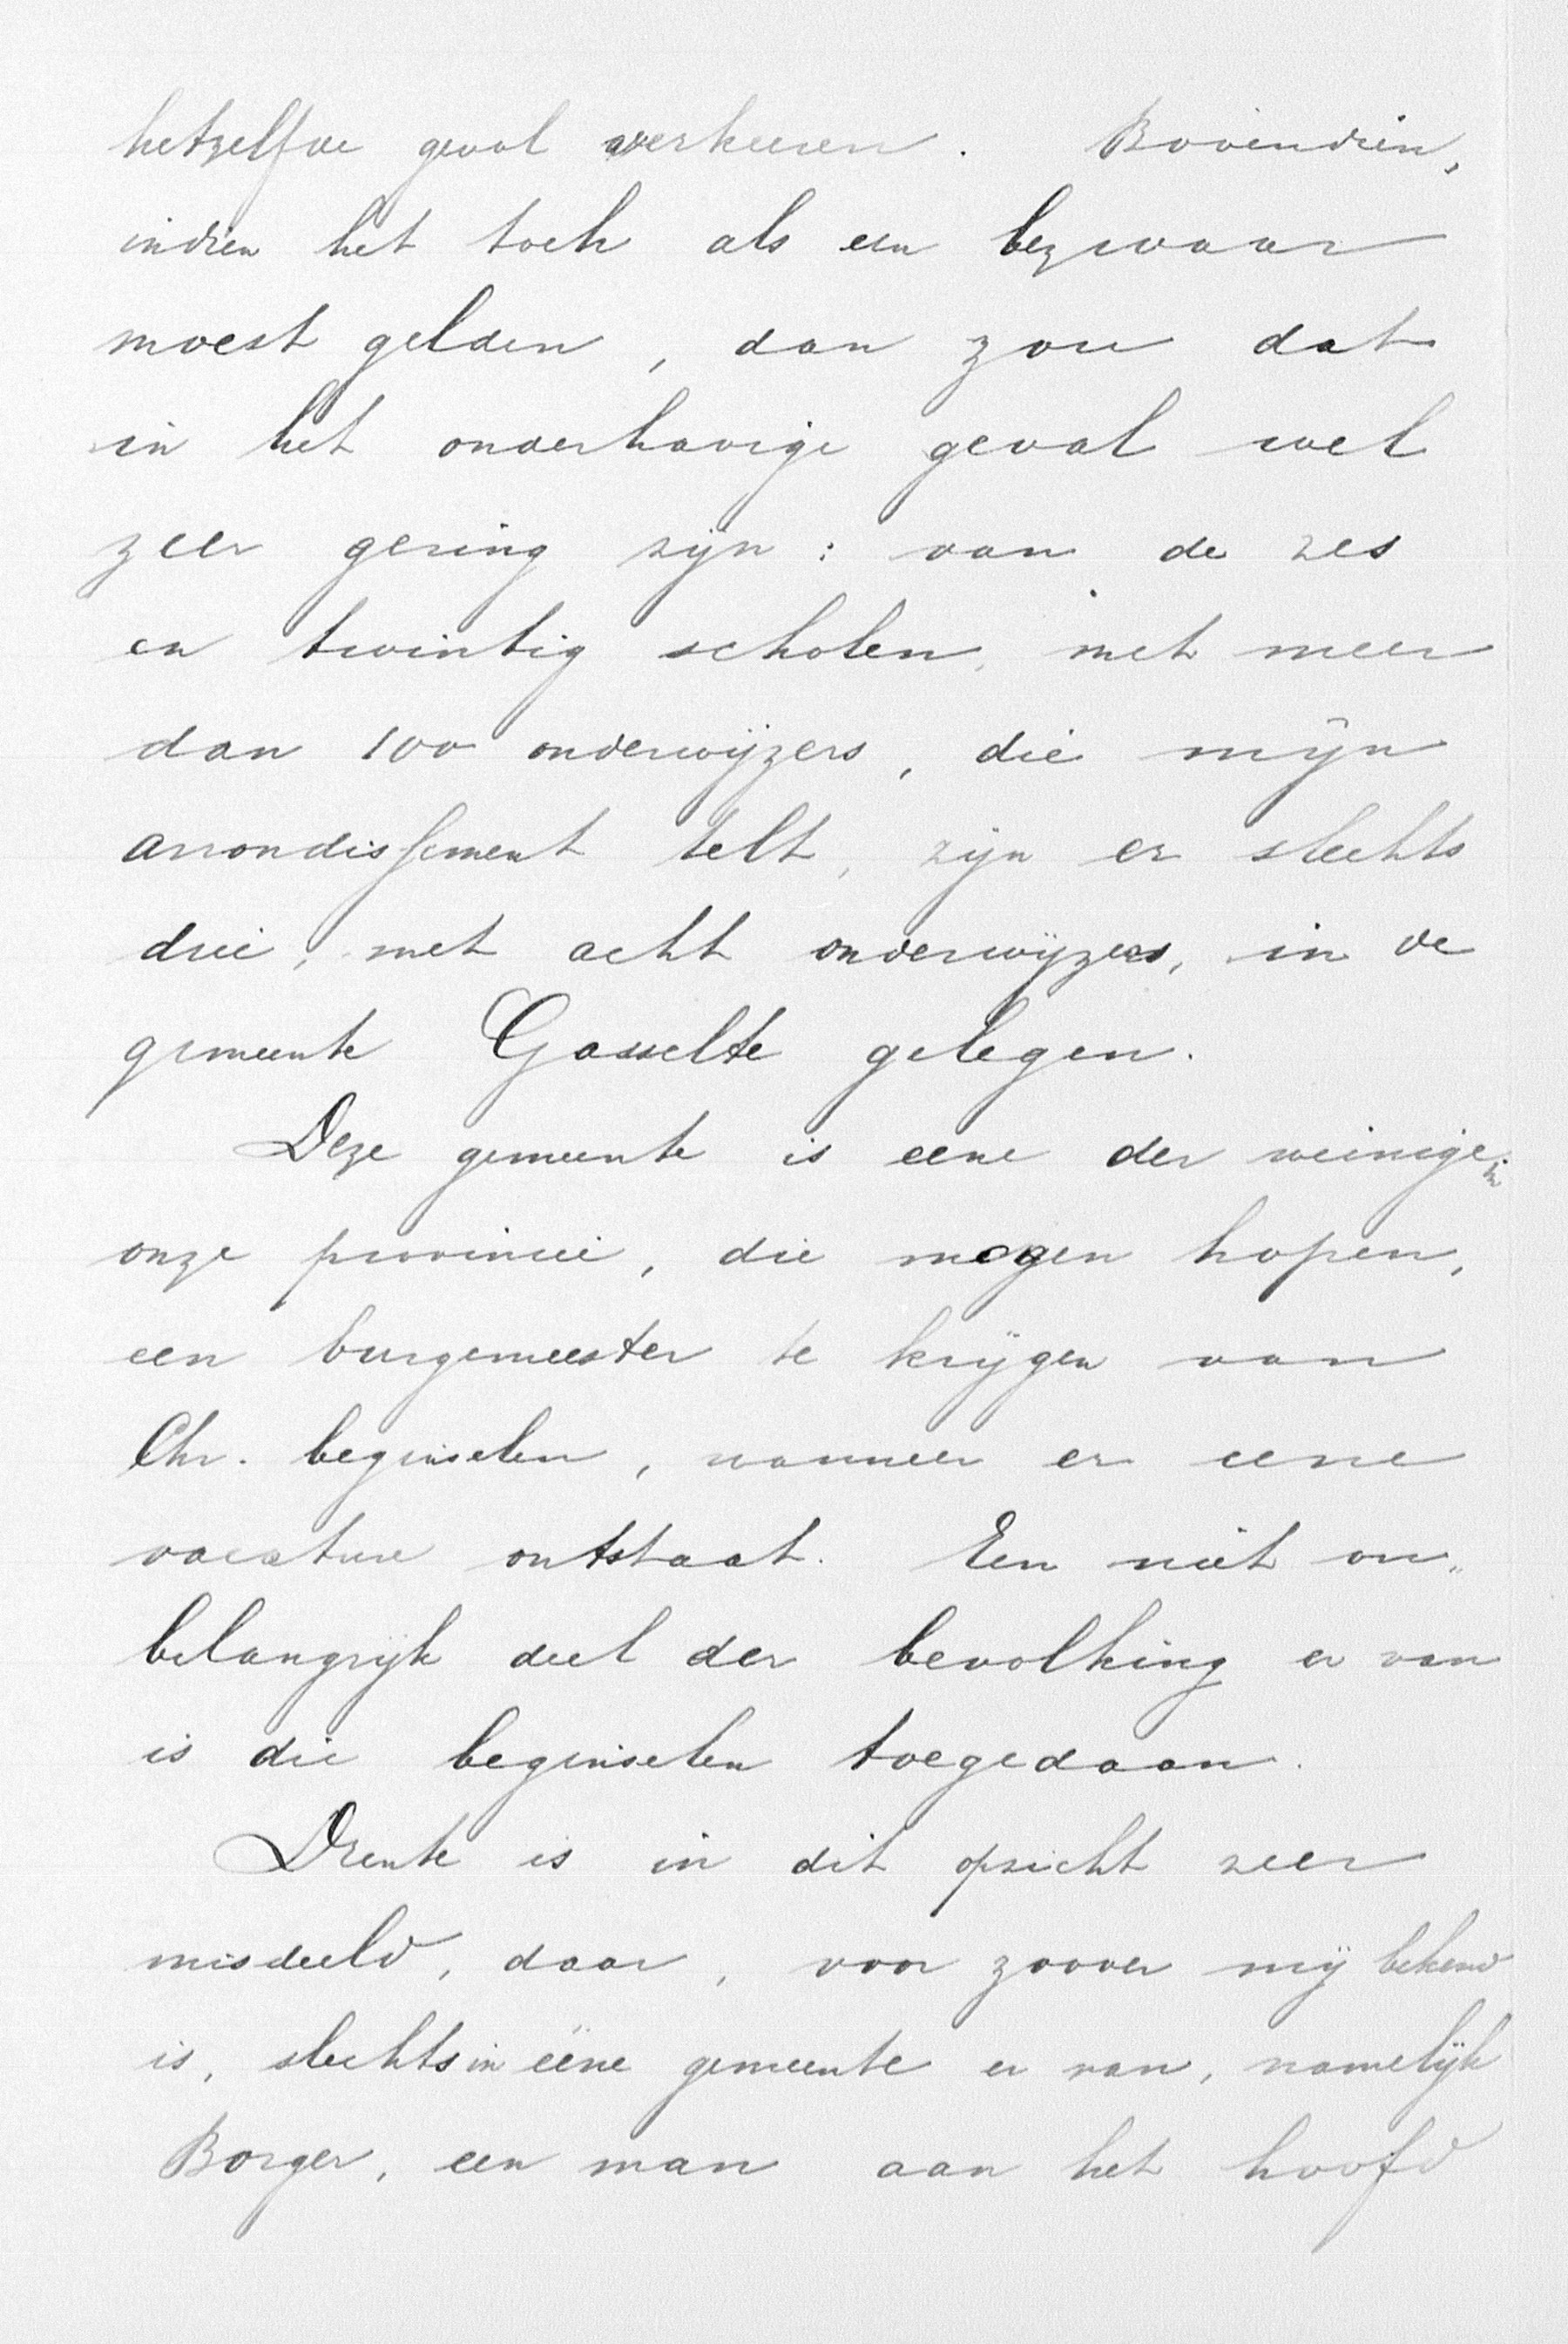 hetzelfde geval verkeeren. Bovendien,
indien het toch als een bezwaar
moest gelden, dan zou dat
in het onderhavige geval wel
zeer gering zijn: van de zes
en twintig scholen, met meer
dan 100 onderwijzers, die mijn
arrondissement telt, zijn er slechts
drie, met acht onderwijzers, in de
gemeente Gasselte gelegen.
Deze gemeente is eene der weinige in
onze provincie, die mogen hopen,
een burgemeester te krijgen van
Chr. beginselen, wanneer er eene
vacature ontstaat. Een niet on„
belangrijk deel der bevolking er van
is die beginselen toegedaan.
Drente is in dit opzicht zeer
misdeeld, daar, voor zoover mij bekend
is, slechts in ééne gemeente er van, namelijk
Borger, een man aan het hoofd